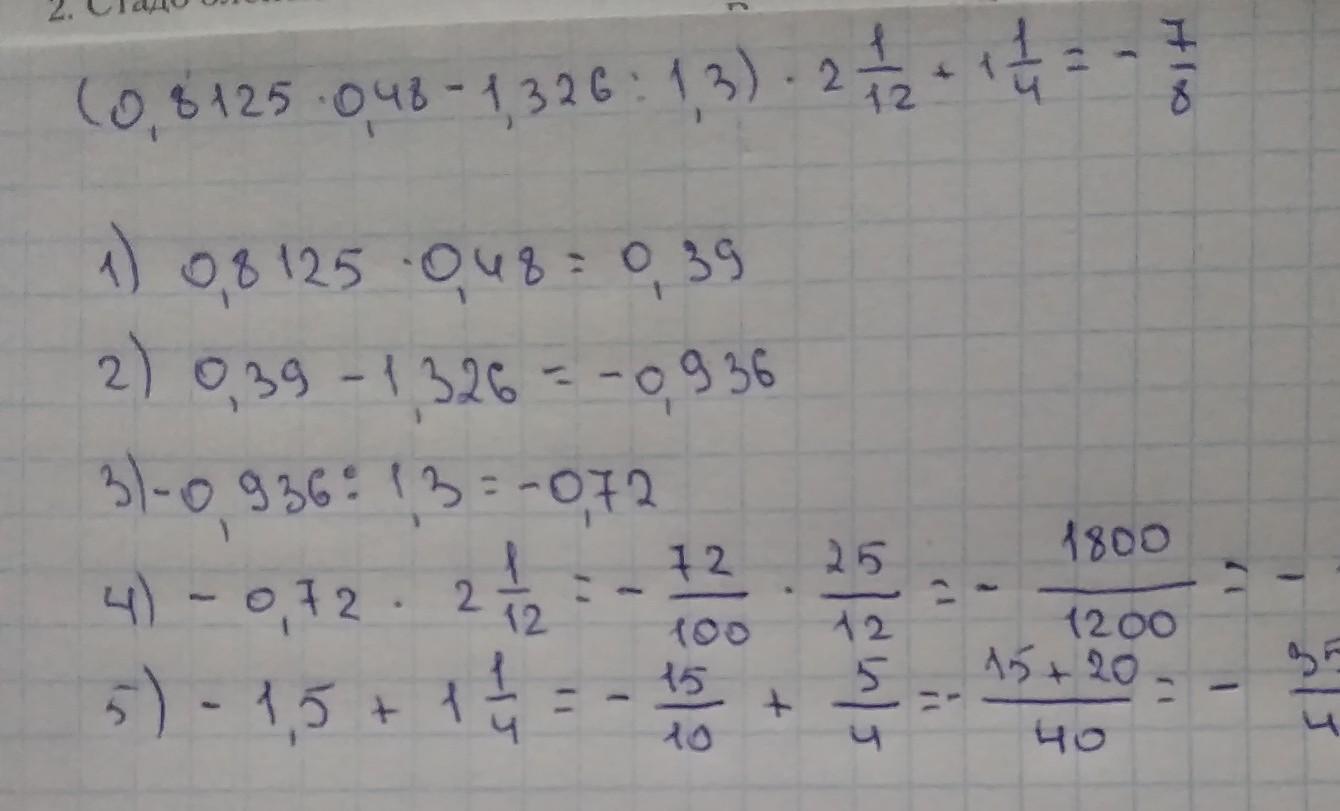 2. Стадо
(0,8125 · 0,48 - 1,326 : 1,3) · 2 1/12 + 1 1/4 = - 7/8
1) 0,8125 · 0,48 = 0,39
2) 0,39 - 1,326 = -0,936
3) -0,936 : 1,3 = -0,72
4) - 0,72 · 2 1/12 = - 72/100 · 25/12 = - 1800/1200 = -
5) - 1,5 + 1 1/4 = - 15/10 + 5/4 = - 15+20/40 = - 35/4